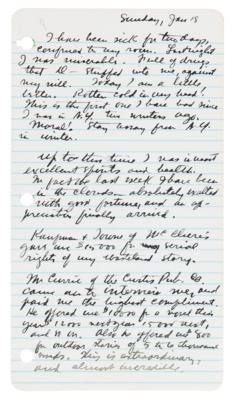 Sunday, Jan 18
I have been sick for ten days,
confined to my room. Last night
I was miserable. Full of drugs
that Dr — stuffed into me, against
my will. Today I am a little
better. Rotten cold in my head!
This is the first one I have had since
I was in N.Y. two winters ago.
Moral: Stay away from N.Y.
in winter.
Up to this time I was in most
excellent spirits and health.
In fact the last week I have been
in the clouds — absolutely exalted
with good fortune, and an ap-
preciation finally arrived.
Kaufman & Towne of McClure's
gave me $ for my serial
rights of my wasteland story.
Mr Currie of the Curtis Pub. Co.
came out to interview me, and
paid me the highest compliment.
He offered me for a novel this
year next year 15000 next,
and so on. Also he offered me 800
for outdoor stories of 5 to 6 thousand
words. This is extraordinary
and almost incredible.